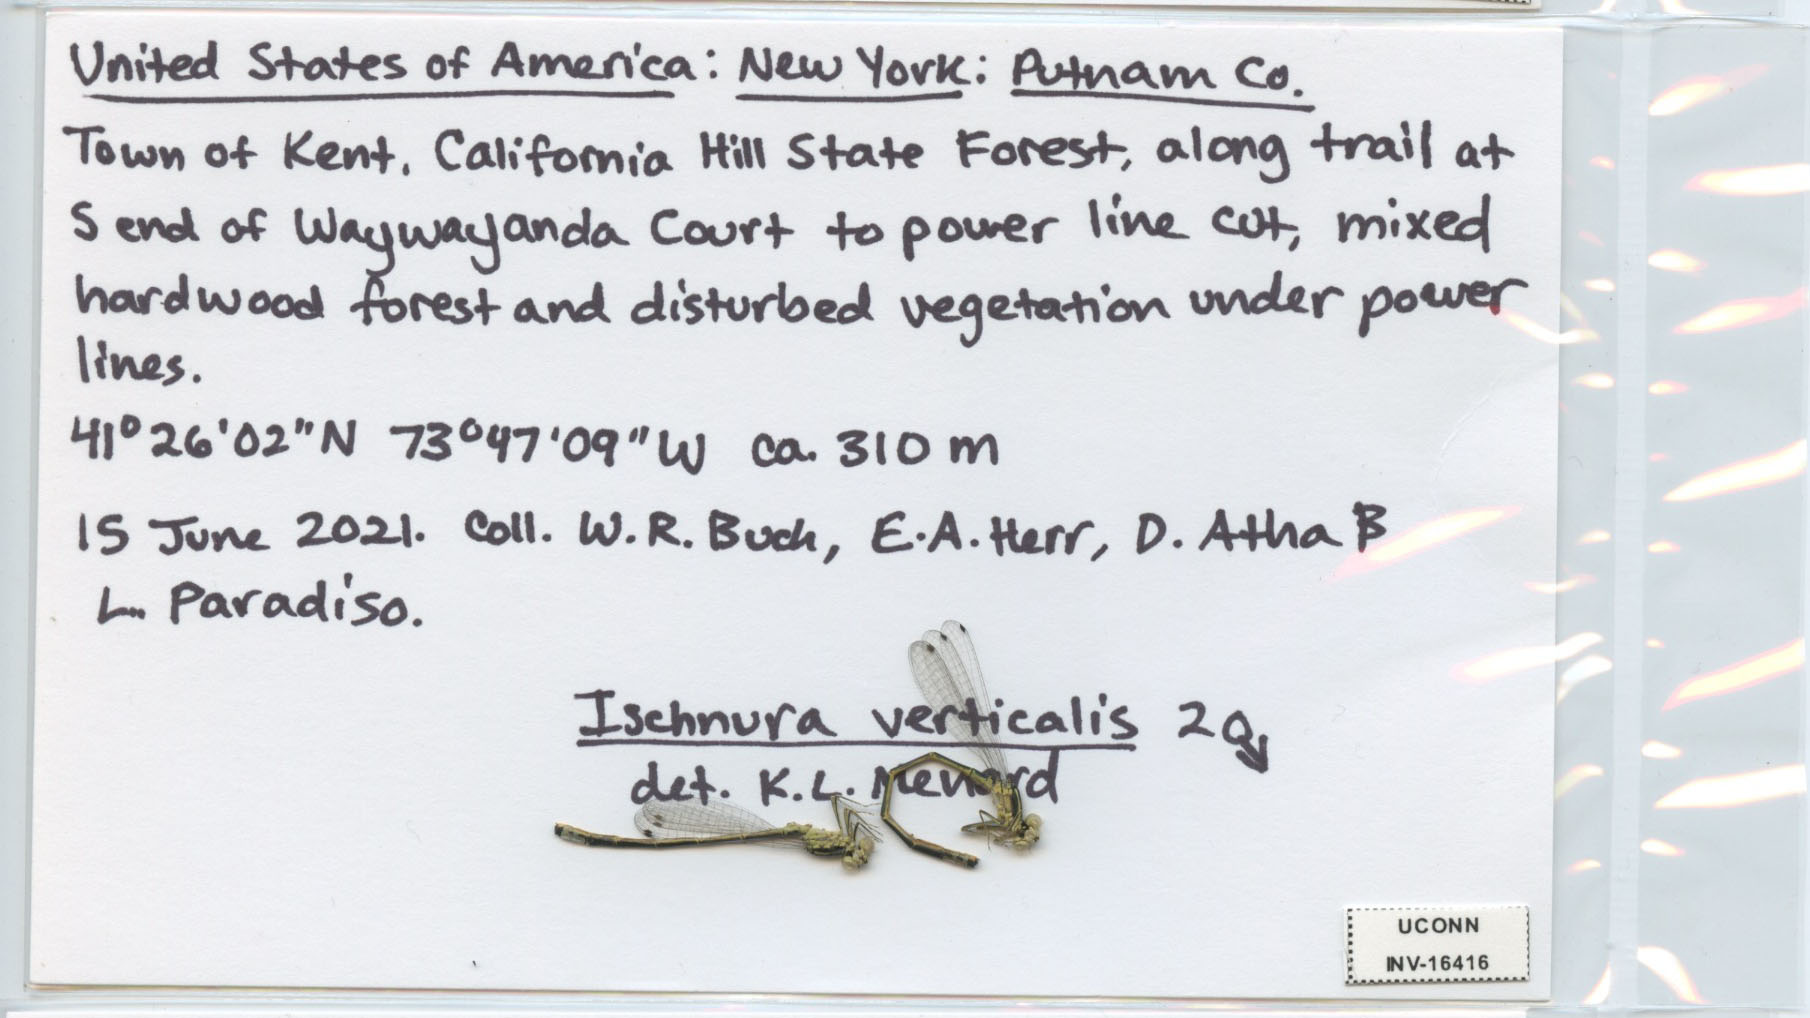 United States of America: New York: Putnam Co.
Town of Kent, California Hill State Forest, along trail at
S end of Waywayanda Court to power line cut, mixed
hardwood forest and disturbed vegetation under power
lines.
41°26'02"N 73°47'09"W ca. 310 m
15 June 2021. Coll. W.R. Buck, E.A. Herr, D. Atha &
L. Paradiso.
Ischnura verticalis 2♂
det. K.L. Menard
UCONN
INV-16416